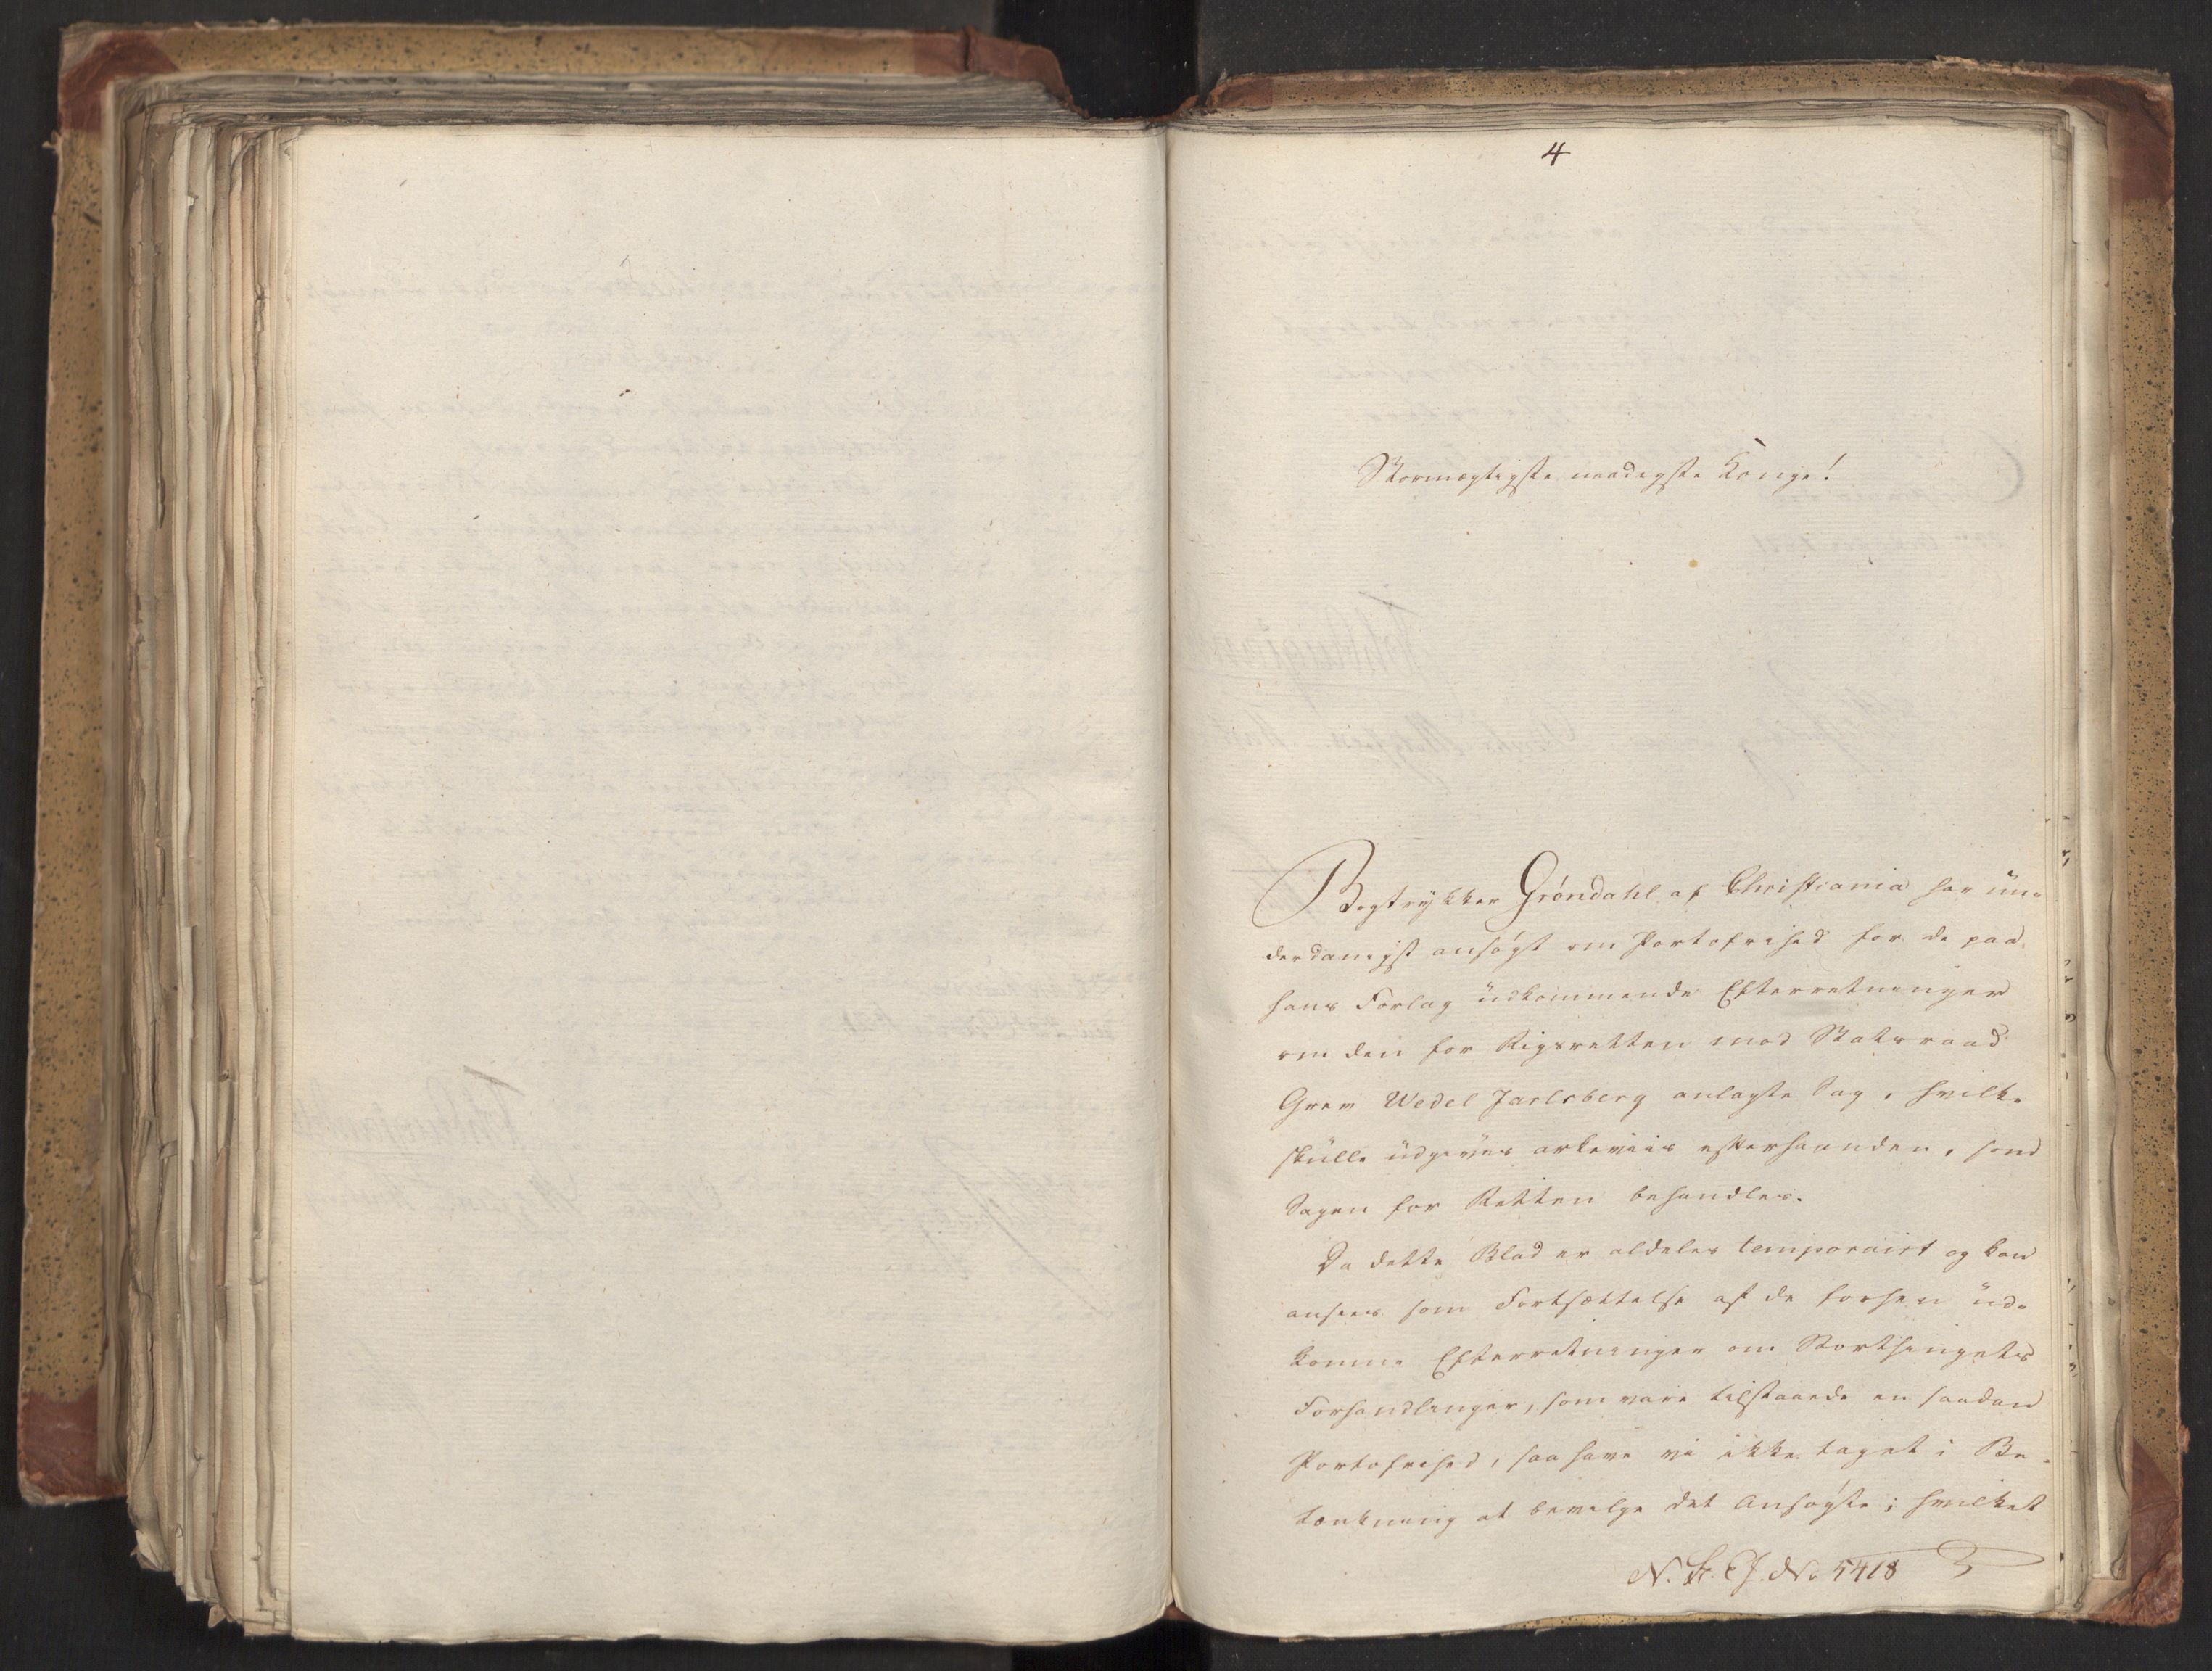 4
Stormægtigste naadigste Konge!
Bogtrykker Gröndahl af Christiania har un-
derdanigst ansøgt om Portofrihed for de paa
hans Forlag udkommende Efterretninger
om den for Rigsretten mod Statsraad
Grev Wedel Jarlsberg anlagte Sag, hvilke
skulle udgives arkeviis efterhaanden, som
Sagen for Retten behandles.
Da dette Blad er aldeles temporairt og kan
ansees som Fortsættelse af de forhen ud-
komne Efterretninger om Storthingets
Forhandlinger, som vare tilstaaede en saadan
Portofrihed, saa have vi ikke taget i Be-
tænkning at bevilge det Ansøgte; hvilket
No 5418